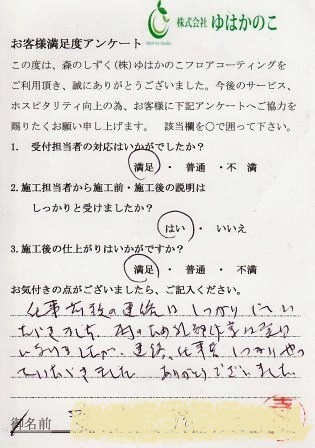 株式会社 ゆはかのこ
お客様満足度アンケート
この度は、森のしずく(株)ゆはかのこフロアコーティングを
ご利用頂き、誠にありがとうございました。今後のサービス、
ホスピタリティ向上の為、お客様に下記アンケートへご協力を
賜りたくお願い申し上げます。 該当欄を〇で囲って下さい。
1. 受付担当者の対応はいかがでしたか?
満足 ・ 普通 ・ 不 満
2.施工担当者から施工前・施工後の説明は
しっかりと受けましたか?
はい ・ いいえ
3.施工後の仕上がりはいかがですか?
満足 ・ 普通 ・ 不満
お気付きの点がございましたら、ご記入ください。
仕事前後の連絡は しっかりしてい
ただきました 雨のため外部作業は
ましたが、連絡、仕事を しっかりやっ
ていただきました ありがとうございました
御名前